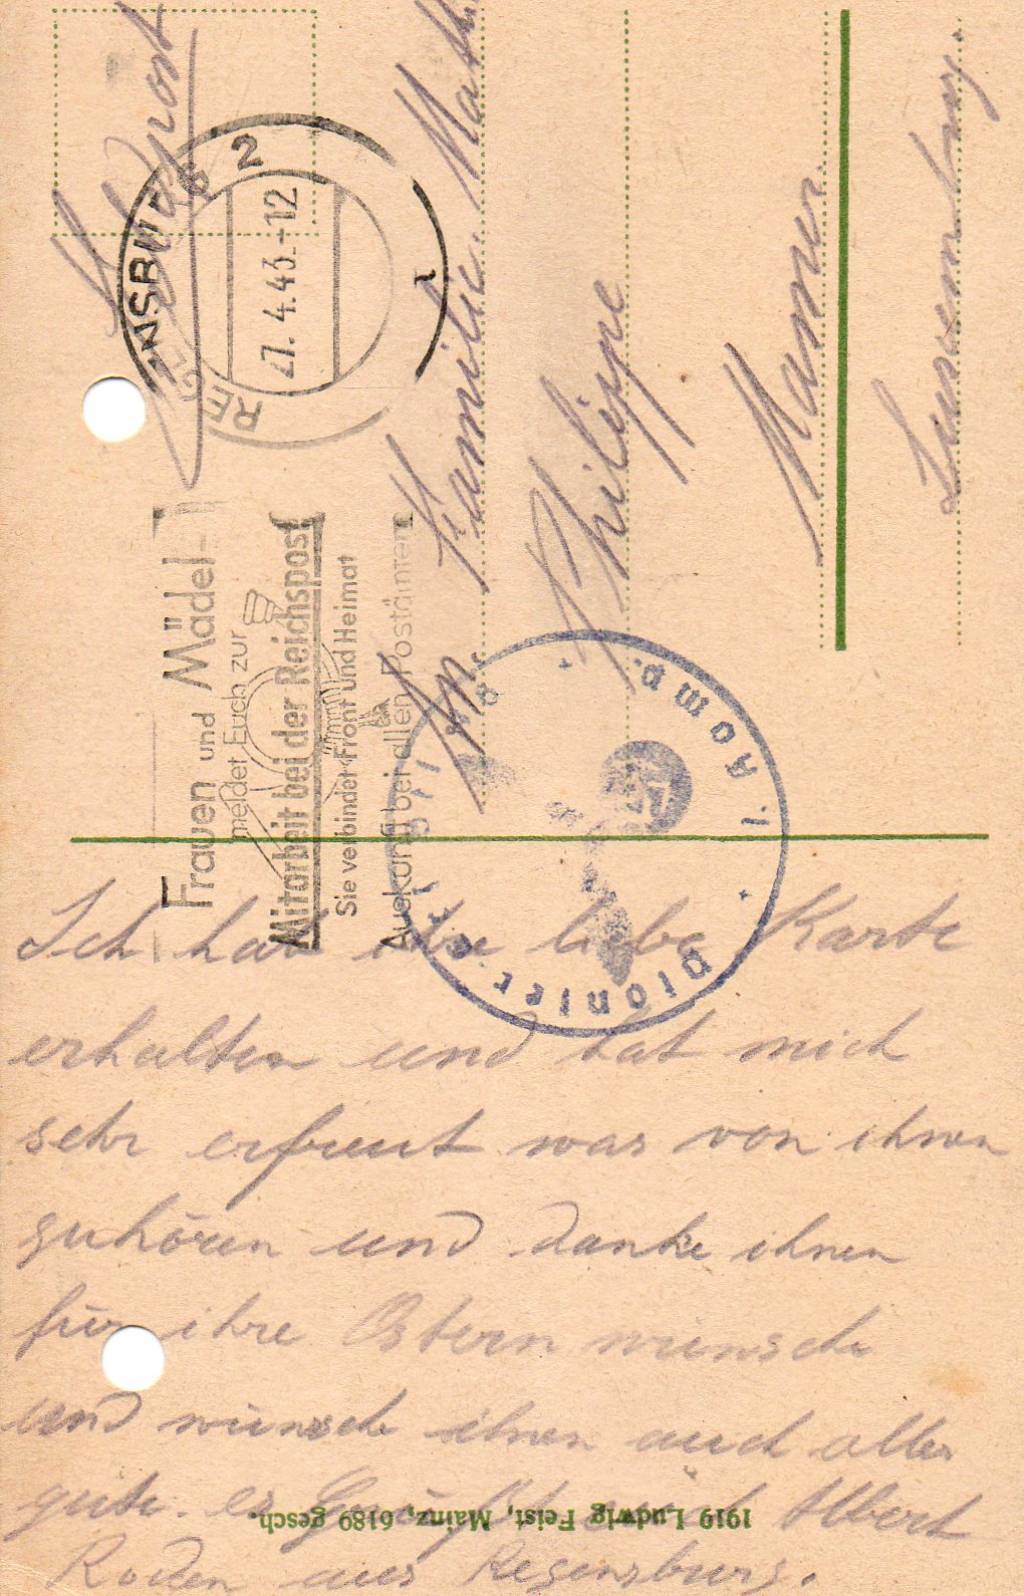 Feldpost
REGENSBURG 2
27.4.43.-12
Frauen und Mädel
meldet Euch zur
Mitarbeit bei der Reichspost
Sie verbindet Front und Heimat
Auskunft bei allen Postämtern
An Familie Math.
Philippe
Mamer
Luxemburg.
1. Komp. Pionier
Ich hab ihre liebe Karte
erhalten und hat mich
sehr erfreut was von ihnen
zuhören und danke ihnen
für ihre Ostern wünsche
und wünsche ihnen auch alles
gute. es Albert
Roden aus Regensburg.
1919 Ludwig Feist, Mainz, 6189 gesch.